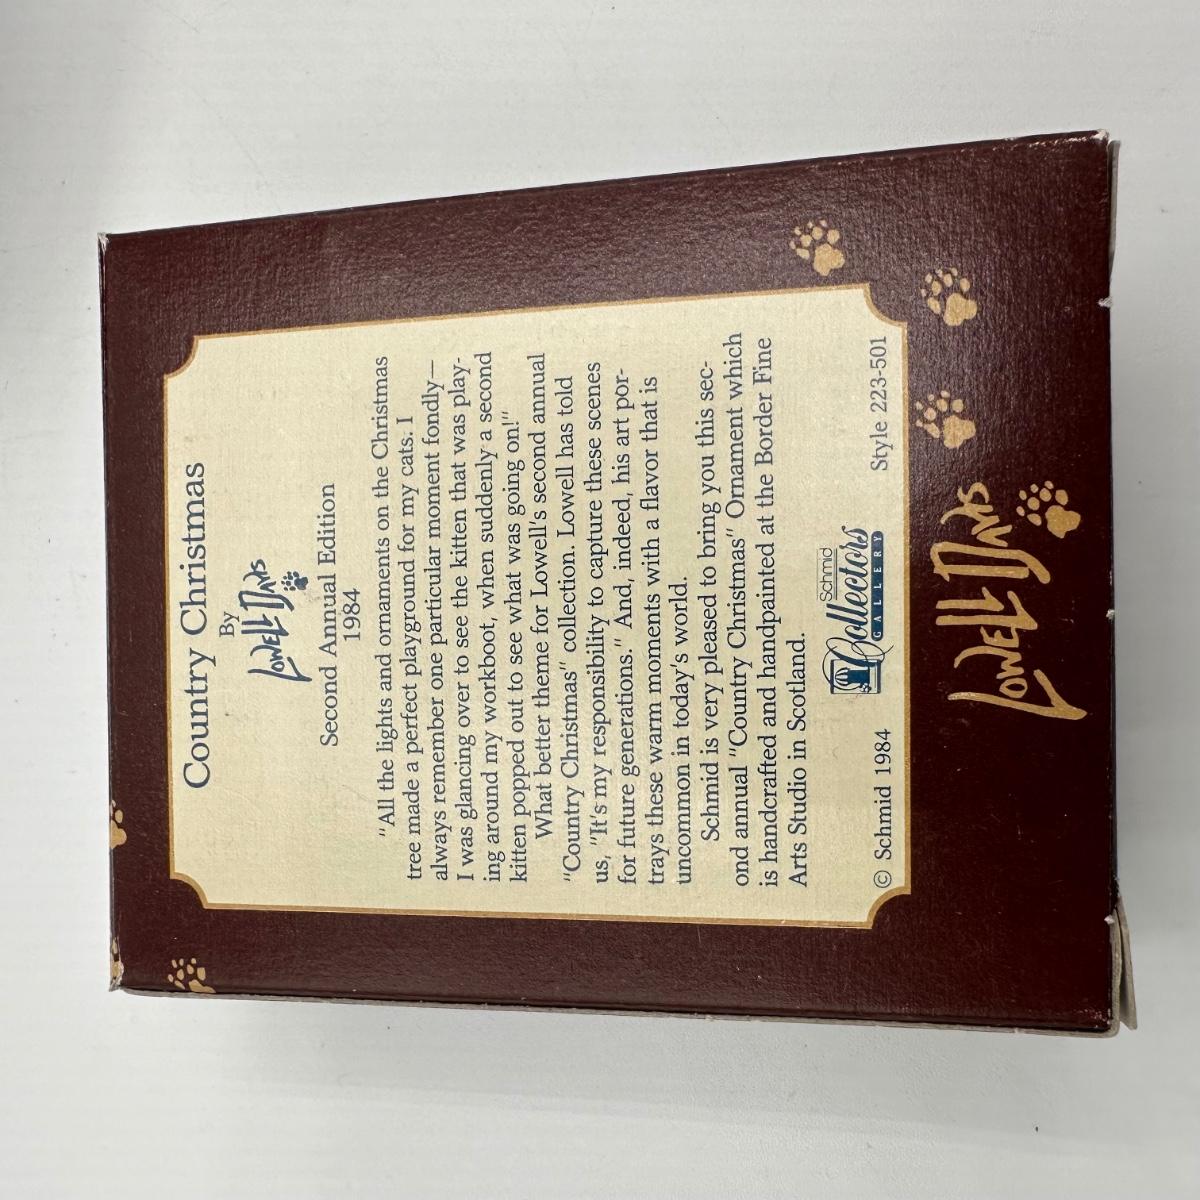 Country Christmas
By
LOWELL DAVIS
Second Annual Edition
1984
"All the lights and ornaments on the Christmas
tree made a perfect playground for my cats. I
always remember one particular moment fondly—
I was glancing over to see the kitten that was play-
ing around my workboot, when suddenly a second
kitten popped out to see what was going on!"
What better theme for Lowell's second annual
"Country Christmas" collection. Lowell has told
us, "It's my responsibility to capture these scenes
for future generations." And, indeed, his art por-
trays these warm moments with a flavor that is
uncommon in today's world.
Schmid is very pleased to bring you this sec-
ond annual "Country Christmas" Ornament which
is handcrafted and handpainted at the Border Fine
Arts Studio in Scotland.
Schmid
Collectors
GALLERY
© Schmid 1984
Style 223-501
LOWELL DAVIS